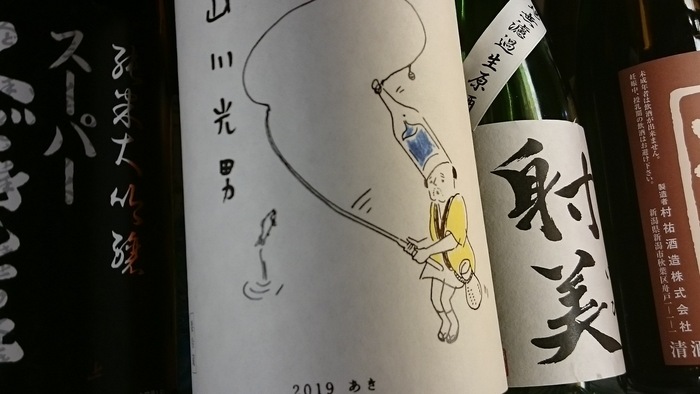 スーパー
純米大吟醸
山川光男
2019 あき
無濾過生原酒
射美
未成年者は飲酒が出来ません。
妊娠中、授乳期の飲酒はお避け下さい。
製造者
村祐酒造株式会社
新潟県新潟市秋葉区舟戸一-一-一
清酒